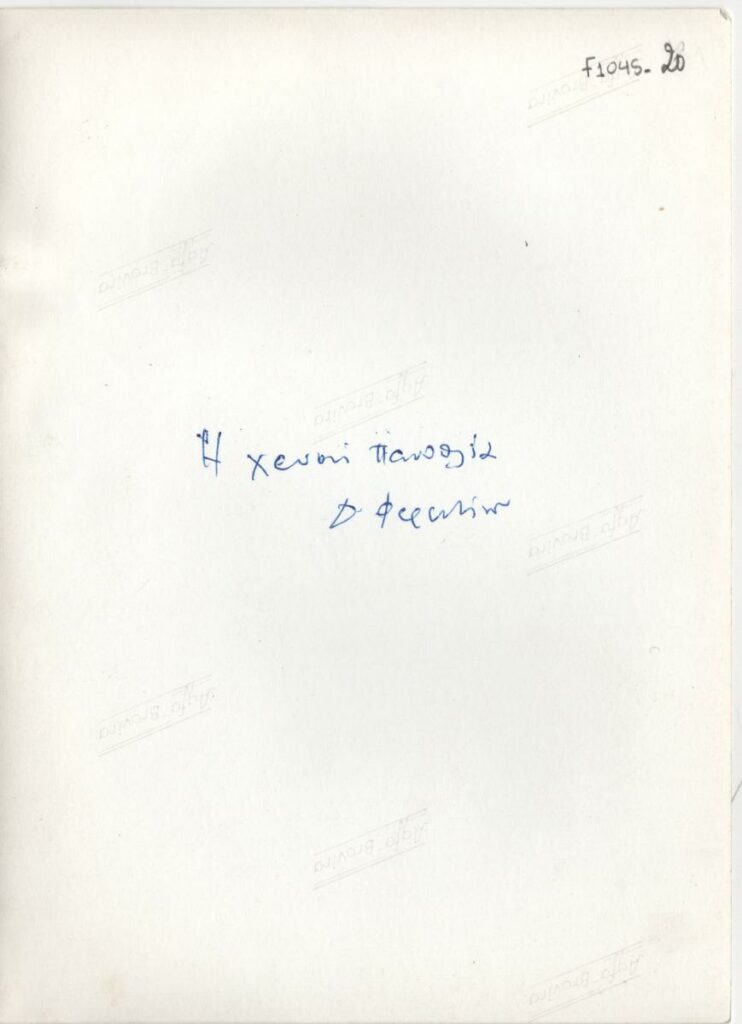 F1045-20
Agfa Brovira
Agfa Brovira
Agfa Brovira
Η χρυσή πανοπλία
Agfa Brovira
Agfa Brovira
Agfa Brovira
Agfa Brovira